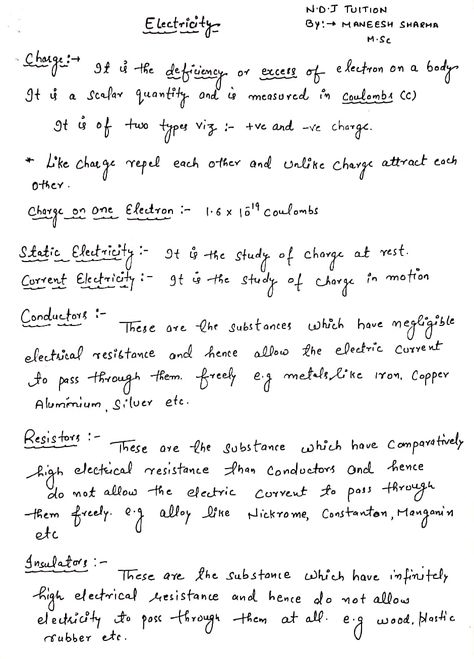 N.D.J TUITION
Electricity
By:→ MANEESH SHARMA
M.Sc
Charge:→ It is the deficiency or excess of electron on a body
It is a scalar quantity and is measured in Coulombs (C)
It is of two types viz :- +ve and -ve charge.
* Like charge repel each other and unlike charge attract each
other.
Charge on one Electron :- 1.6 x 10⁻¹⁹ Coulombs
Static Electricity :- It is the study of charge at rest.
Current Electricity :- It is the study of charge in motion
Conductors :-
These are the substances which have negligible
electrical resistance and hence allow the electric current
to pass through them freely e.g metals like Iron, Copper
Aluminium, Silver etc.
Resistors :-
These are the substance which have comparatively
high electrical resistance than conductors and hence
do not allow the electric current to pass through
them freely. e.g alloy like Nickrome, Constantan, Manganin
etc
Insulators :-
These are the substance which have infinitely
high electrical resistance and hence do not allow
electricity to pass through them at all. e.g wood, plastic
rubber etc.